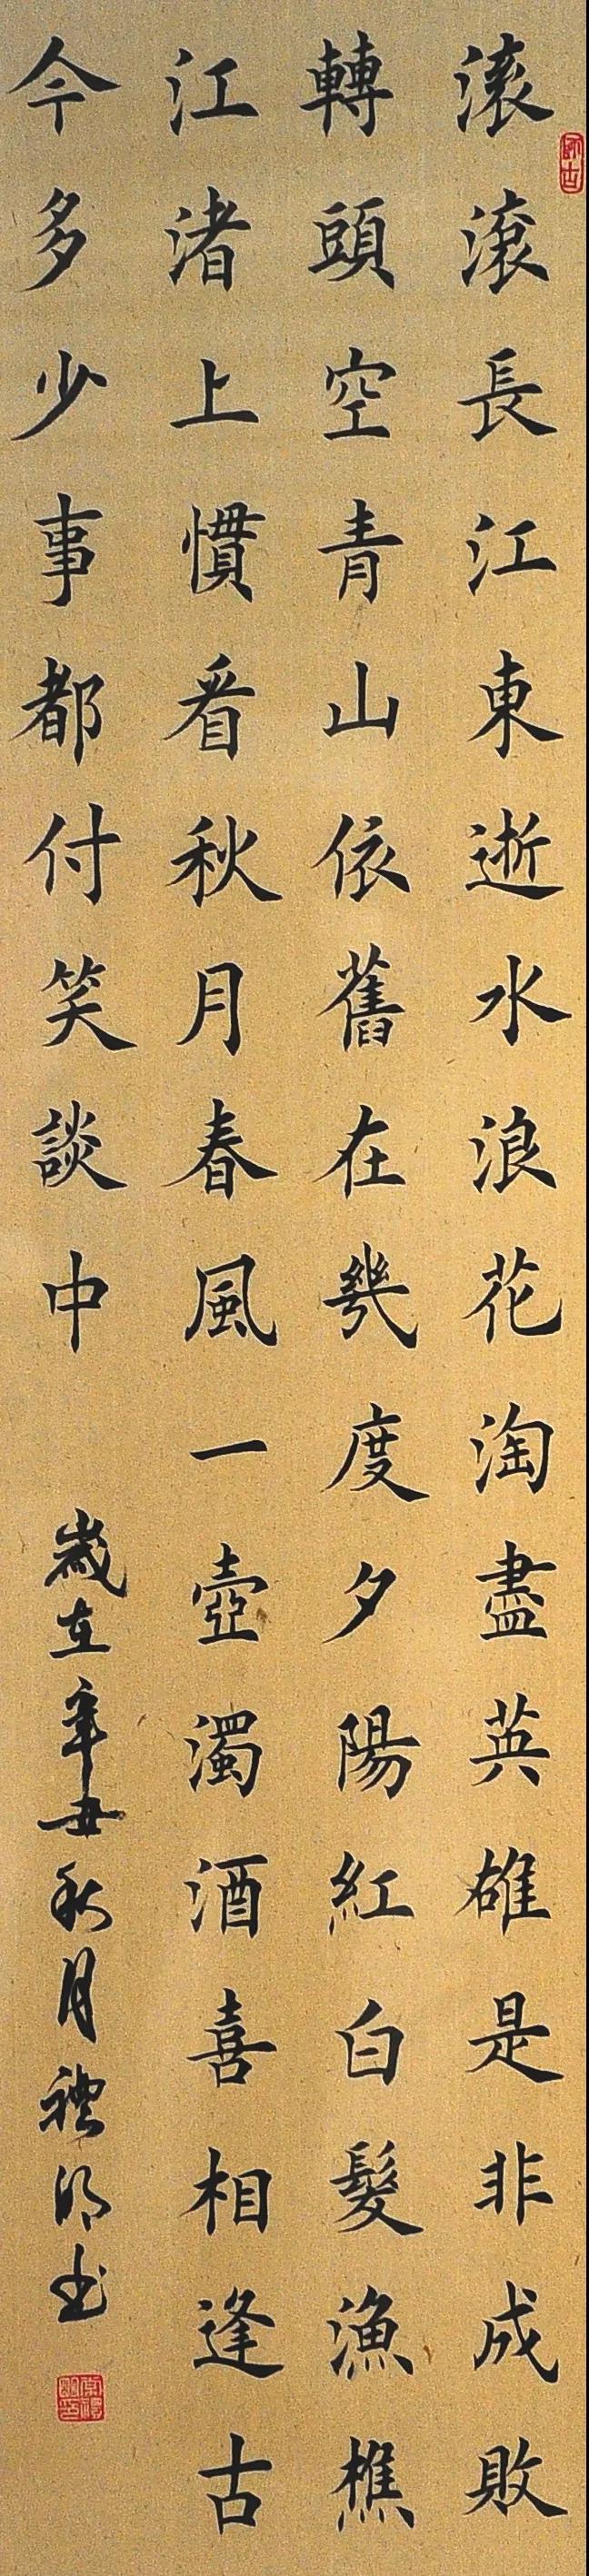 滚滚長江東逝水浪花淘盡英雄是非成敗
轉頭空青山依舊在幾度夕陽紅白髮漁樵
江渚上慣看秋月春風一壺濁酒喜相逢古
今多少事都付笑談中
歲在辛丑秋月禮明书